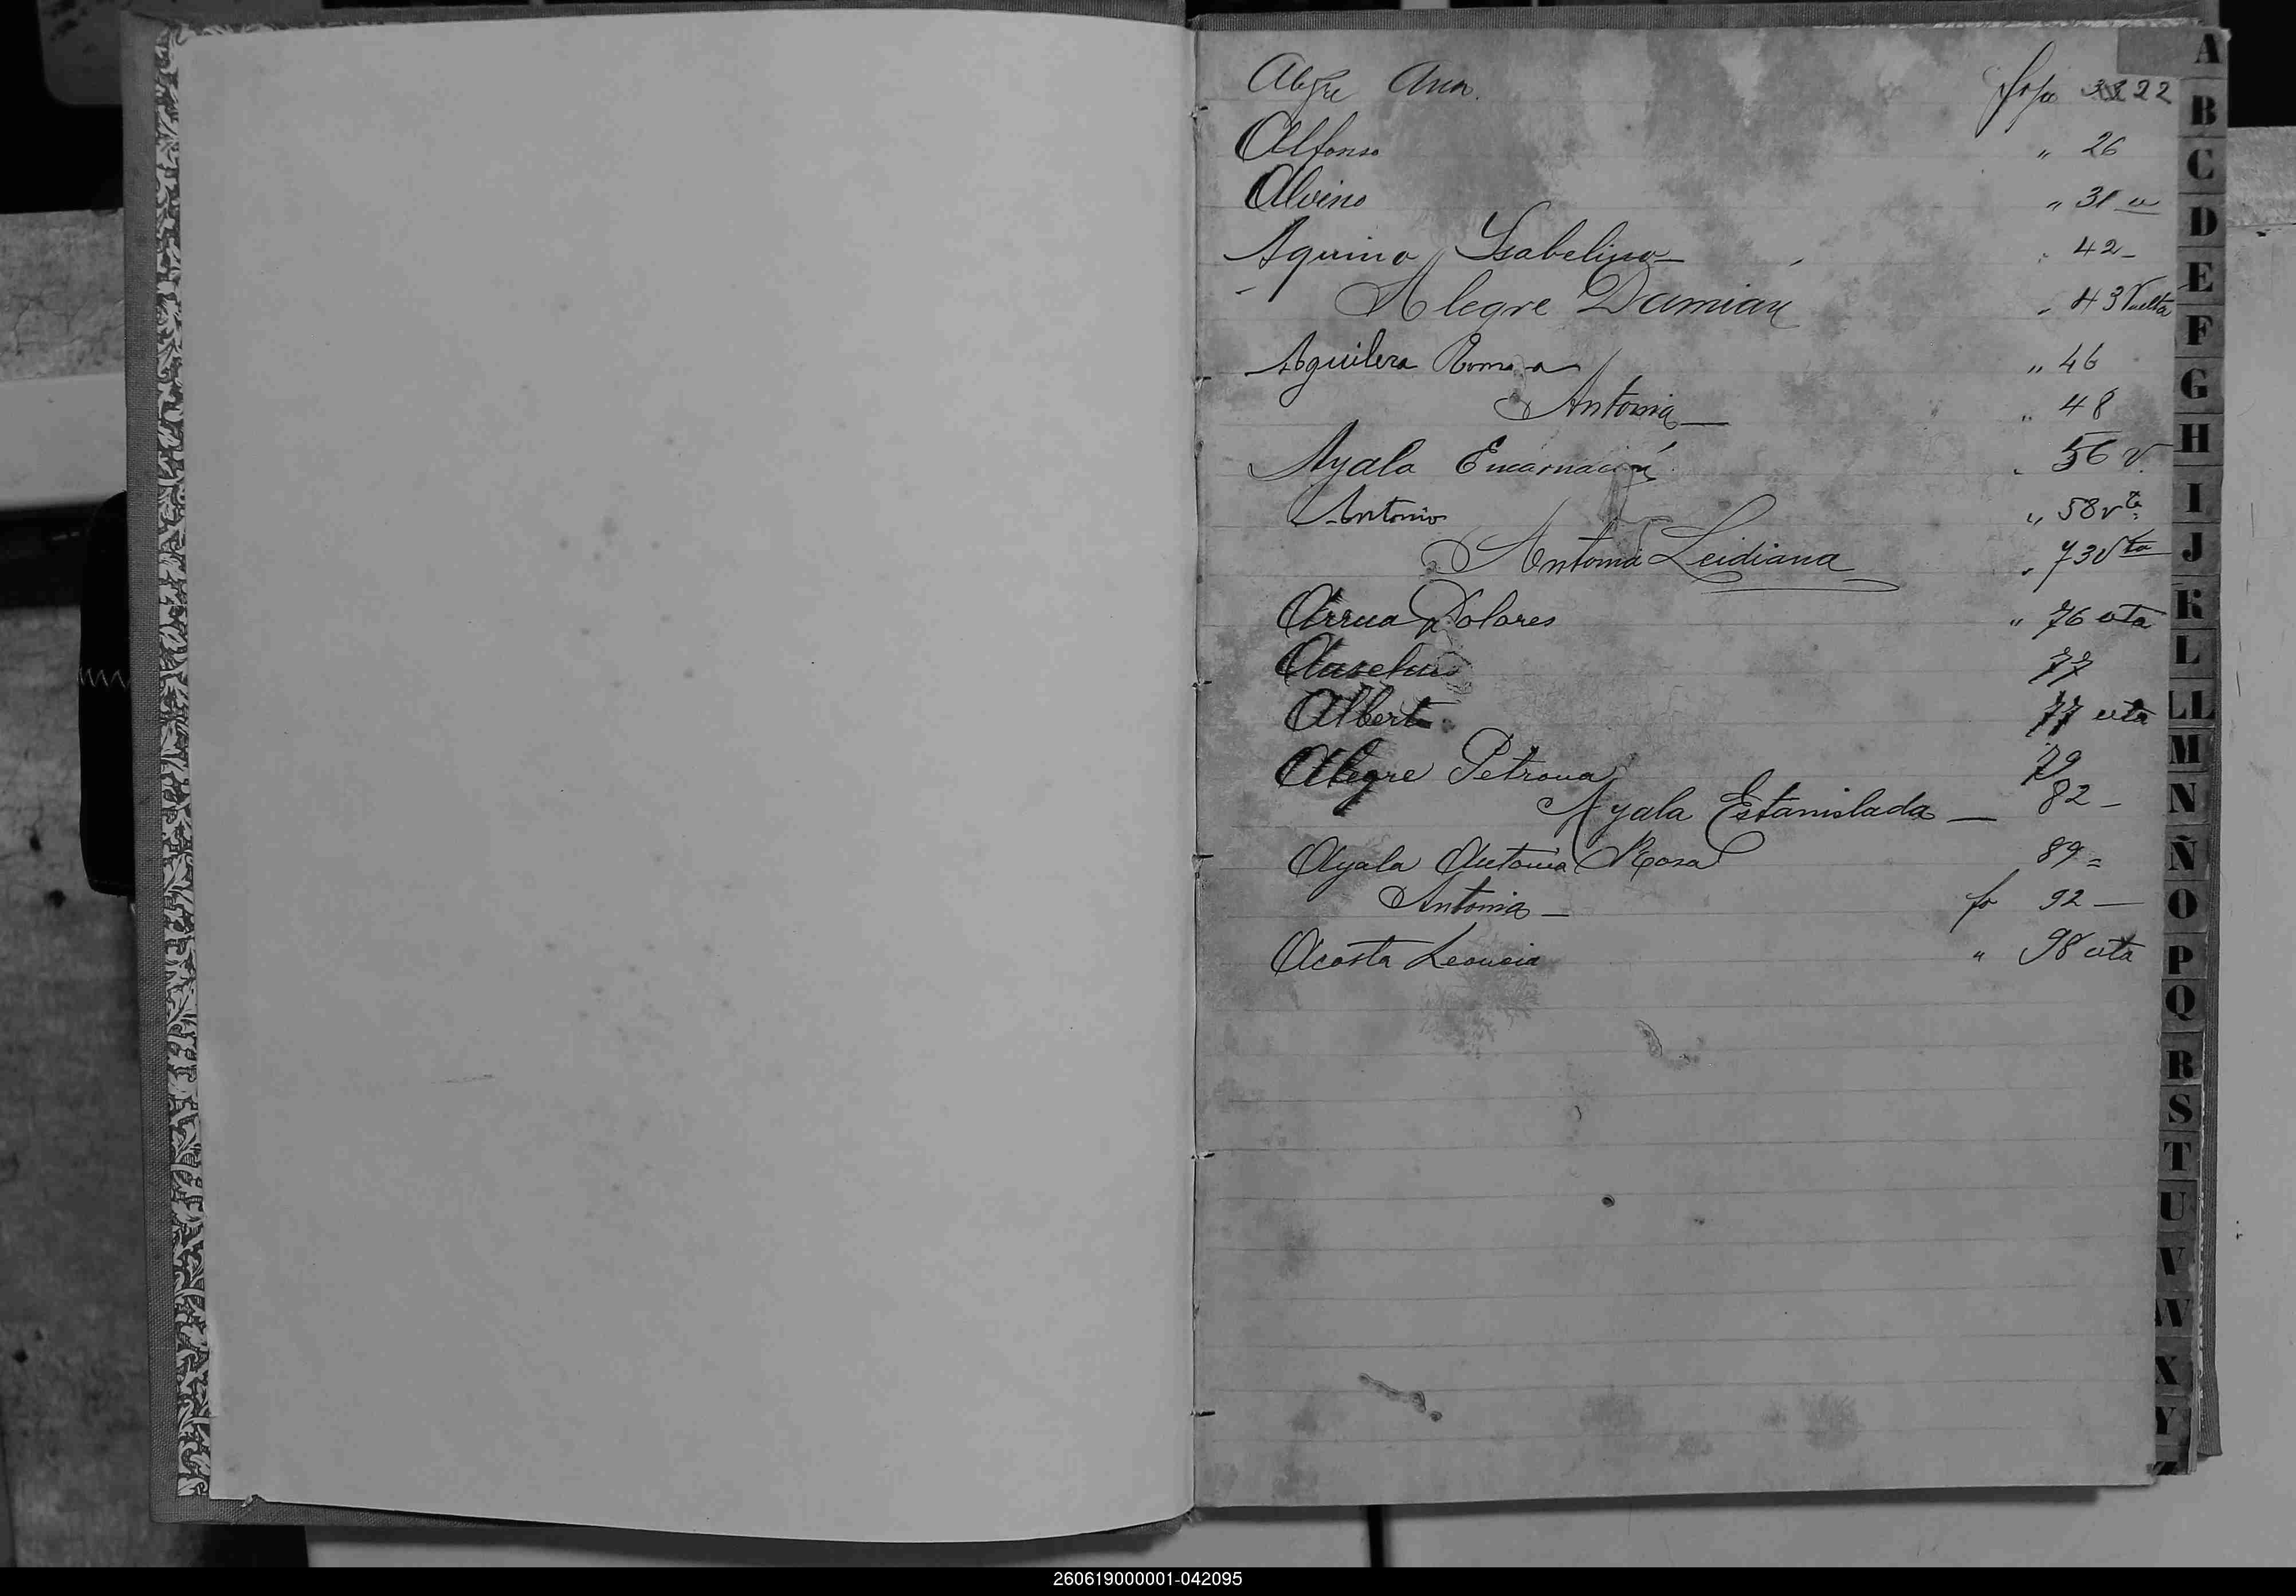 Alegre Ana. foja 22
Alfonso " 26
Alvino " 31 v
Aquino Ysabelino — " 42 -
Alegre Damián " 43 Vuelta
Aguilera Roma a " 46
Antonia — " 48
Ayala Encarnación " 56 v.
Antonio " 58 vta
Antonia Leidiana " 73 vta
Arrua Dolores " 76 vta
77
Albert 77 vta
Alegre Petrona 79
Ayala Estanislada — 82 -
Ayala Antonia Rosa 89 =
Antonia — fo 92 —
Acosta Leoncia " 98 vta
A
B
C
D
E
F
G
H
I
J
K
L
LL
M
N
Ñ
O
P
Q
R
S
T
U
V
W
X
Y
Z
260619000001-042095